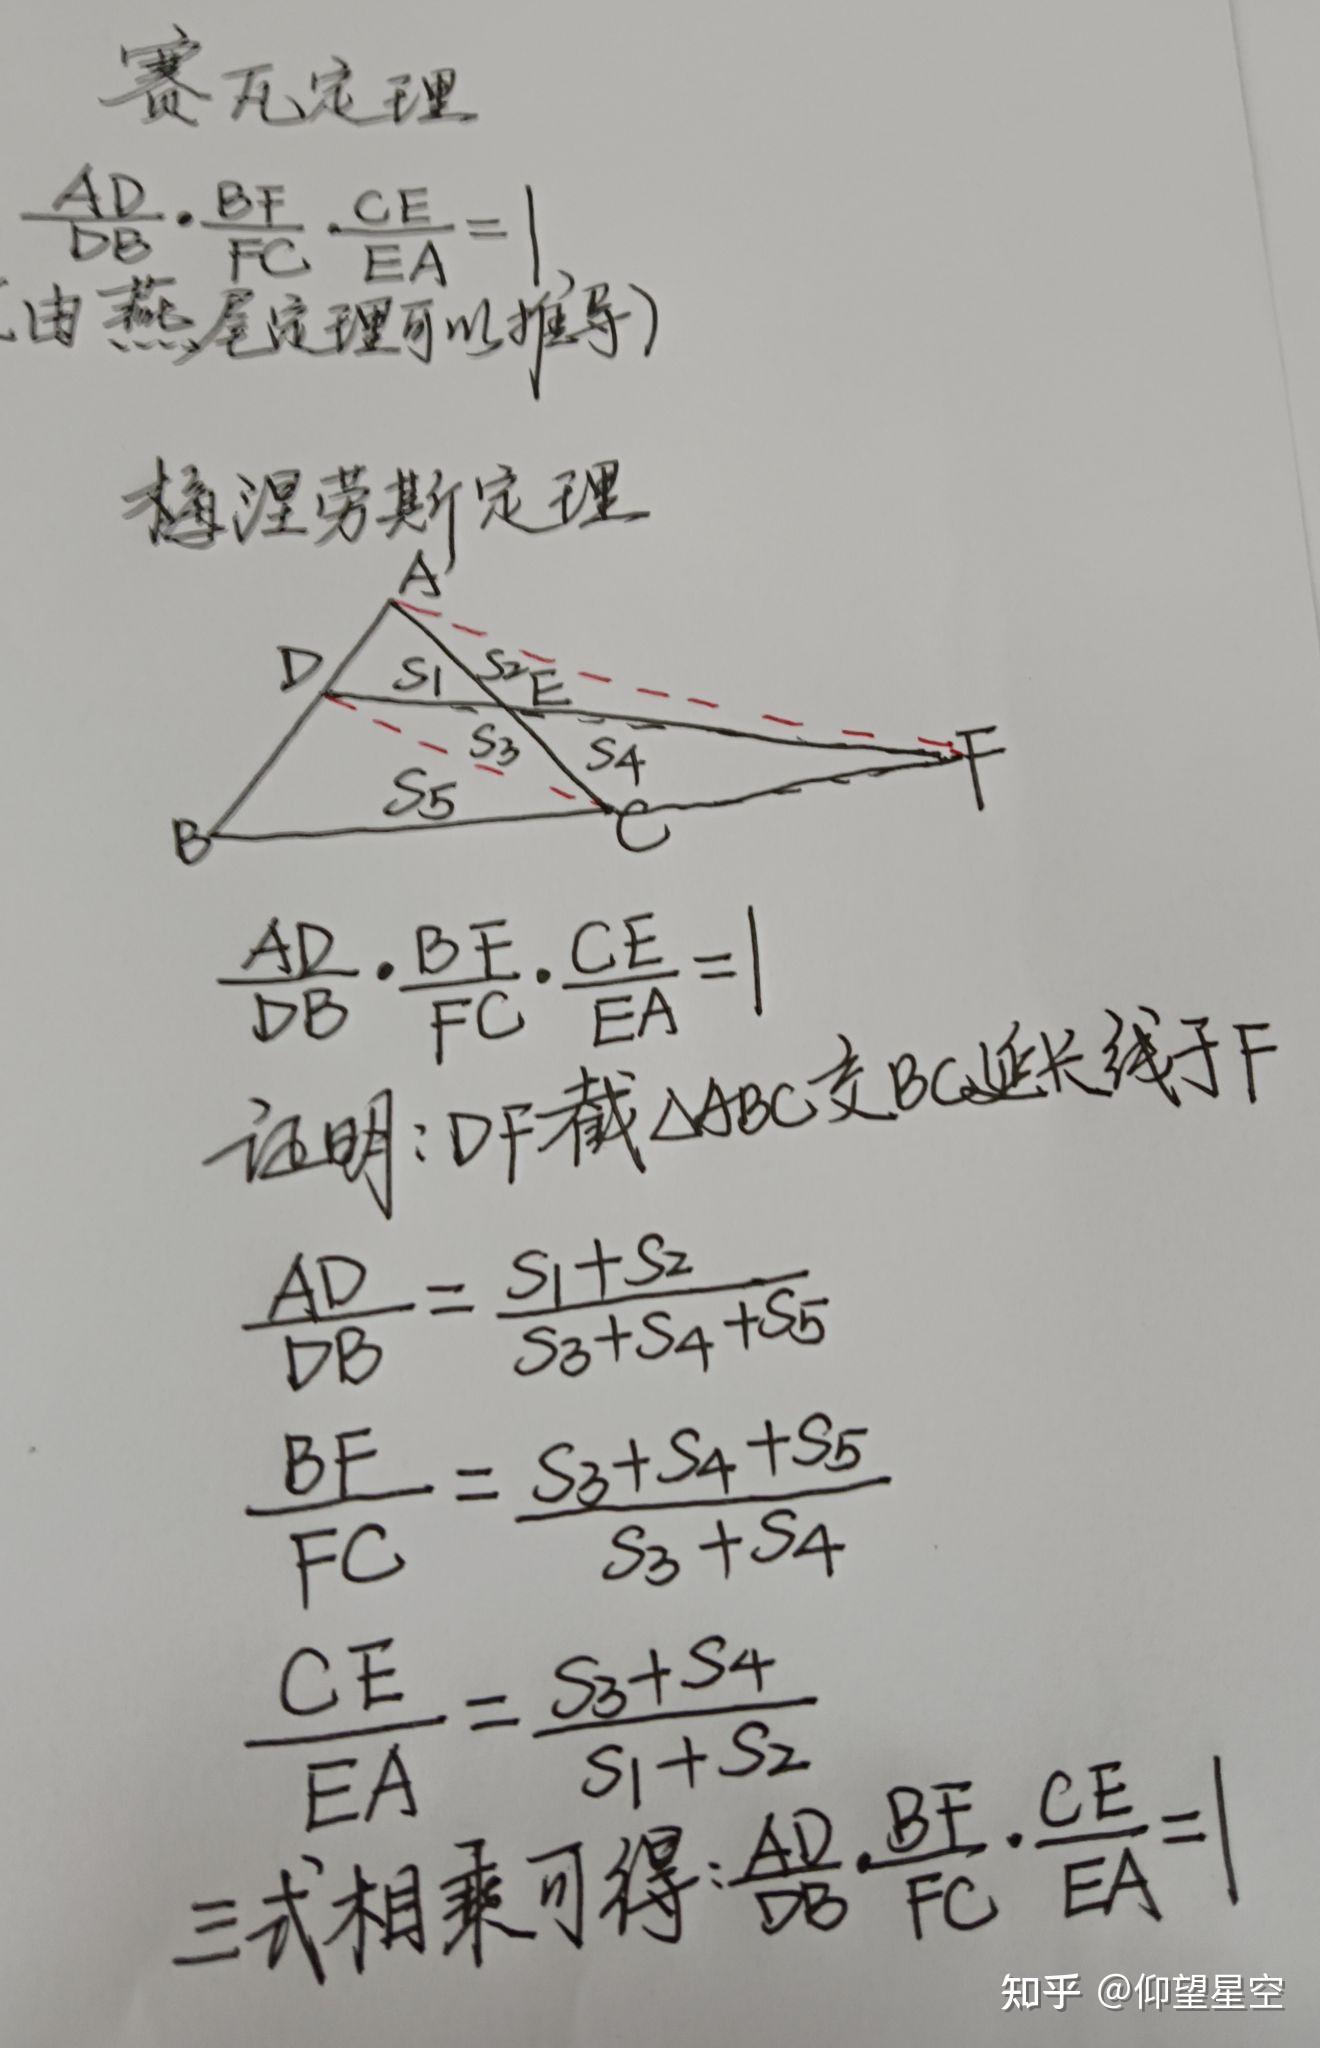 赛瓦定理
AD/DB·BF/FC·CE/EA=1
由燕尾定理可以推导)
梅涅劳斯定理
A
D S1 S2 E
S3 S4 F
S5
B C
AD/DB·BF/FC·CE/EA=1
证明:DF截△ABC交BC延长线于F
AD/DB=S1+S2/S3+S4+S5
BF/FC=S3+S4+S5/S3+S4
CE/EA=S3+S4/S1+S2
三式相乘可得:AD/DB·BF/FC·CE/EA=1
知乎 @仰望星空